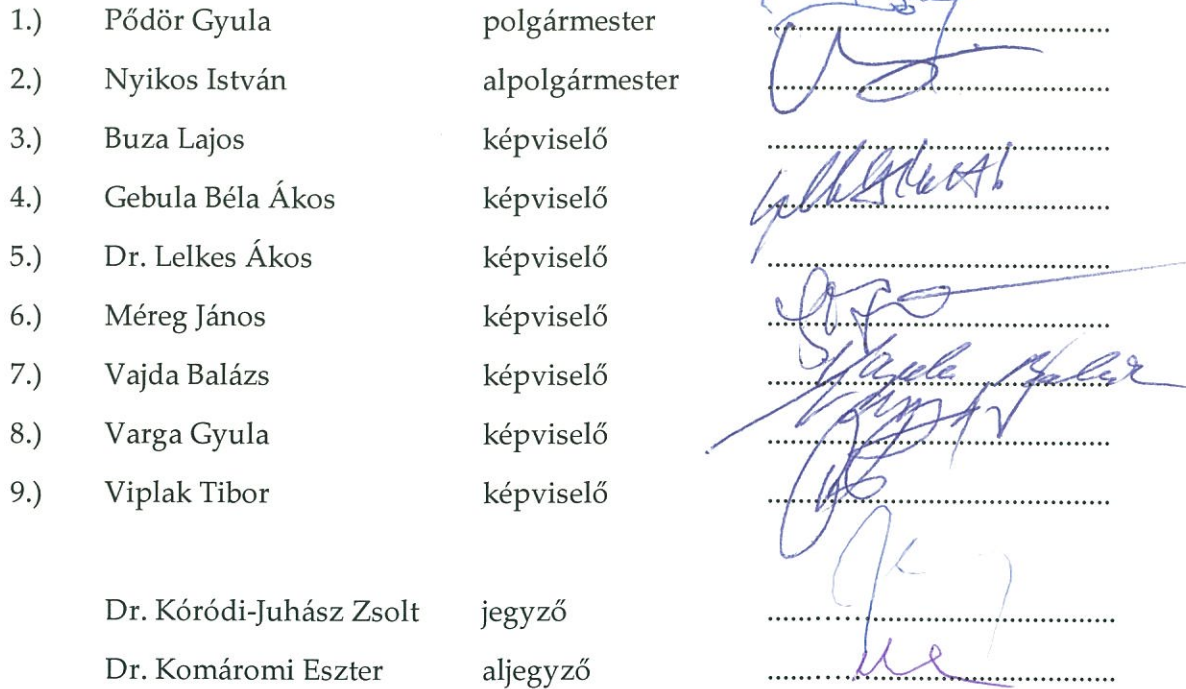 1.) Pődör Gyula polgármester ........................................
2.) Nyikos István alpolgármester ........................................
3.) Buza Lajos képviselő ........................................
4.) Gebula Béla Ákos képviselő ........................................
5.) Dr. Lelkes Ákos képviselő ........................................
6.) Méreg János képviselő ........................................
7.) Vajda Balázs képviselő ........................................ Vajda Balázs
8.) Varga Gyula képviselő ........................................
9.) Viplak Tibor képviselő ........................................
Dr. Kóródi-Juhász Zsolt jegyző ........................................
Dr. Komáromi Eszter aljegyző ........................................